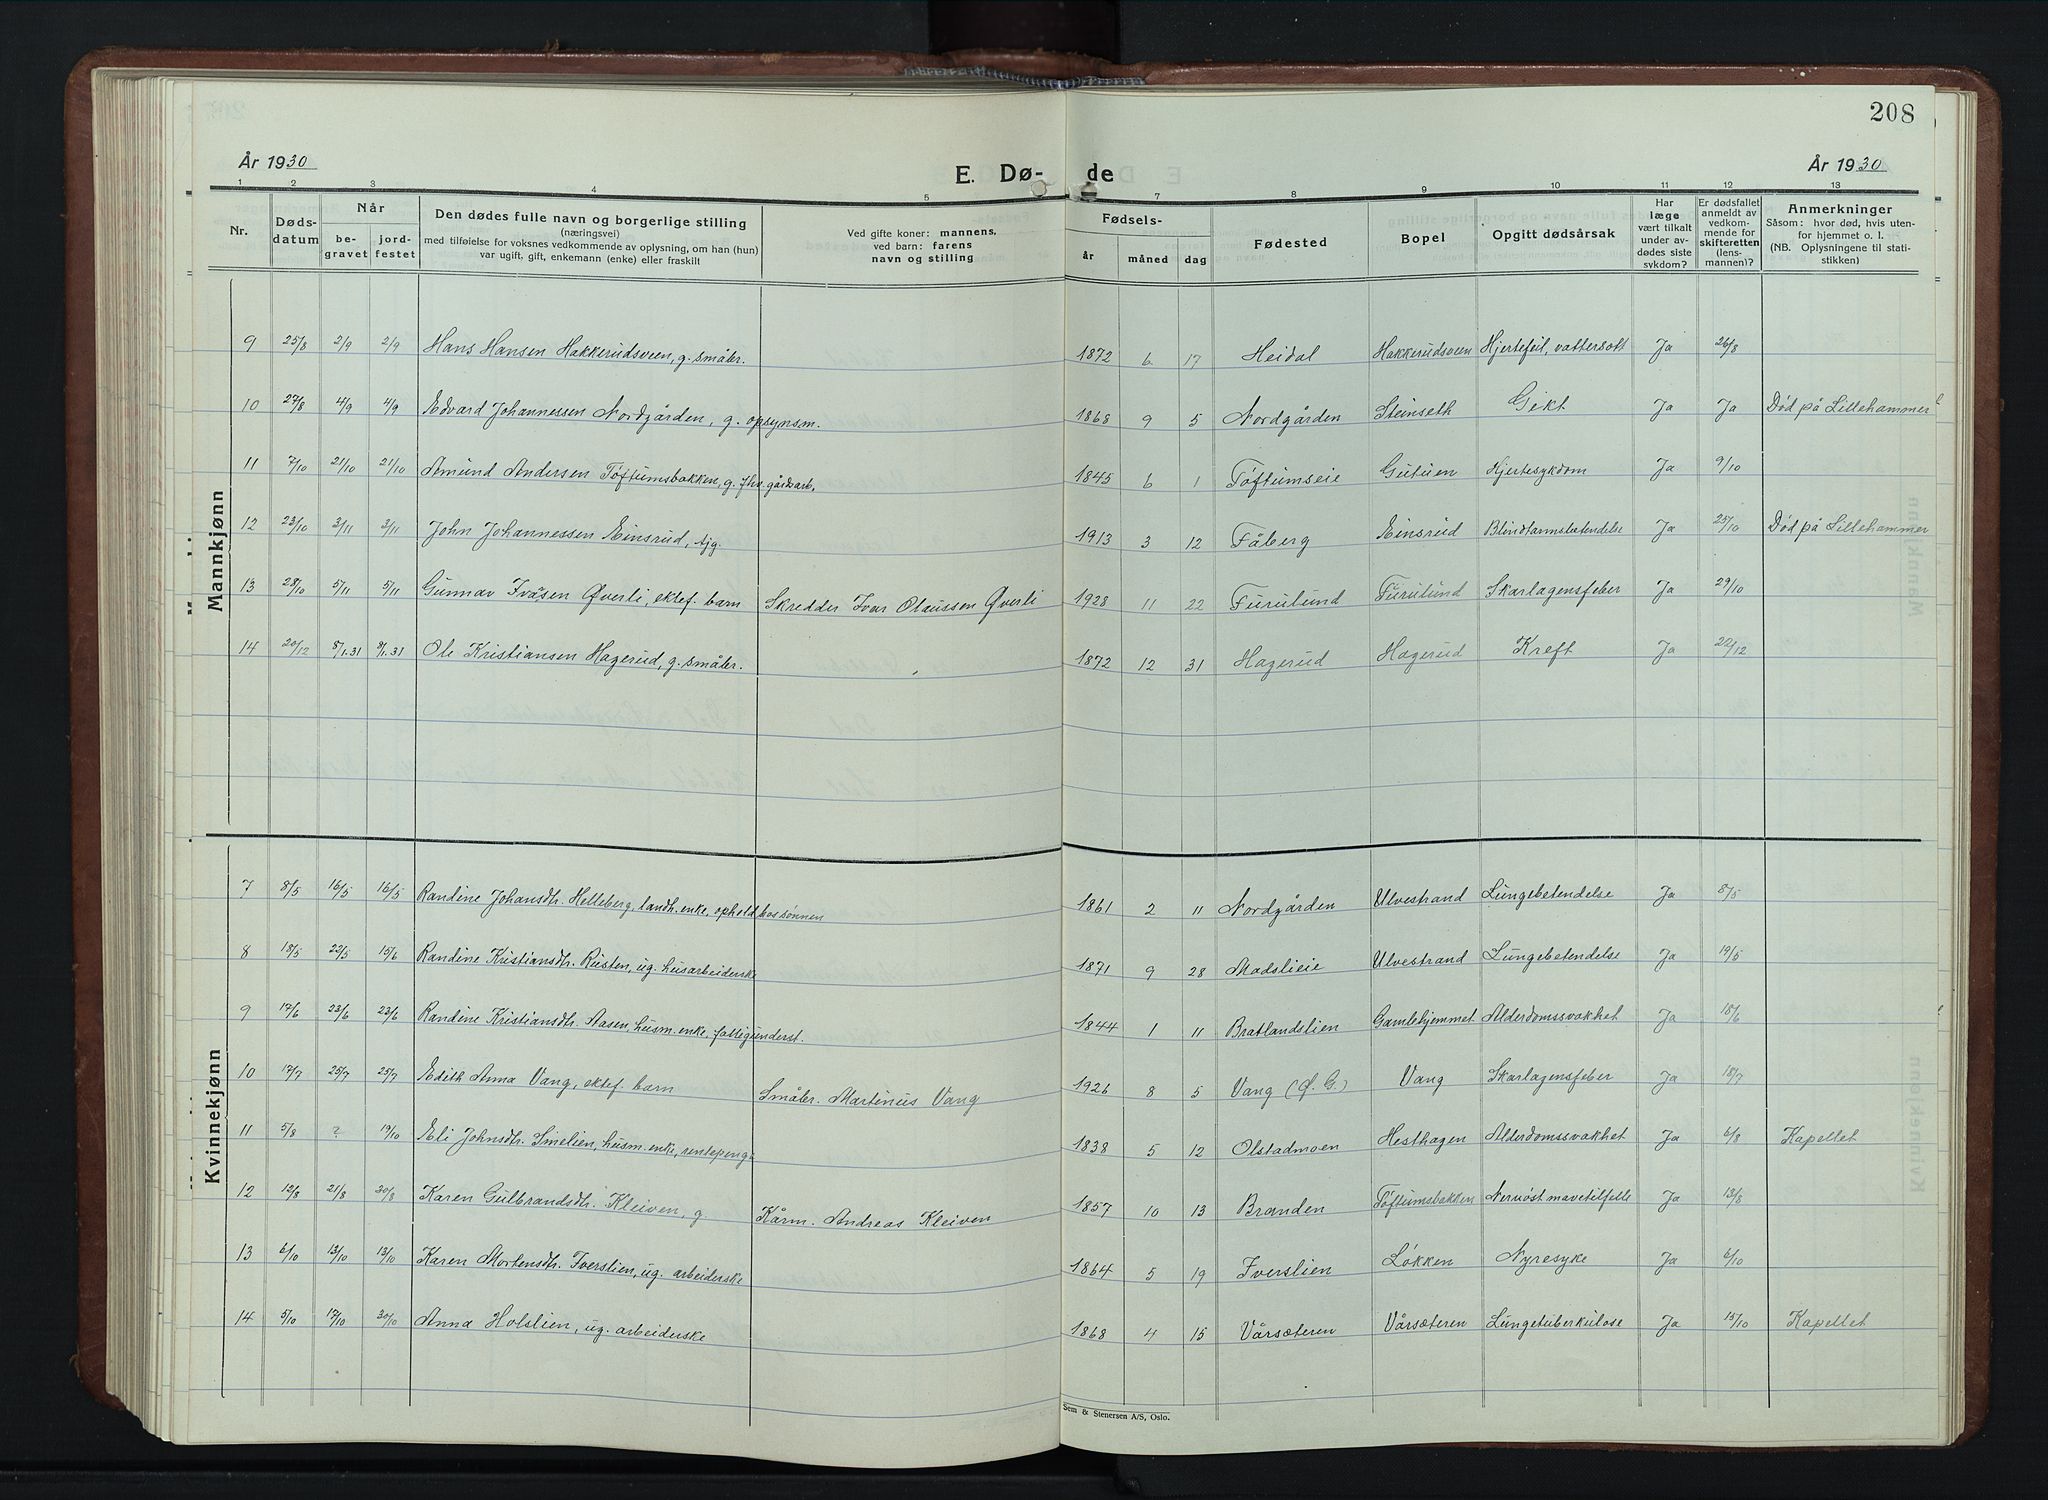 208
År 1930
E. Dø- de
År 1930
1 2 3 4 5 7 8 9 10 11 12 13
Nr.
Døds-
datum
Når
be-
gravet
jord-
festet
Den dødes fulle navn og borgerlige stilling
(næringsvei)
med tilføielse for voksnes vedkommende av oplysning, om han (hun)
var ugift, gift, enkemann (enke) eller fraskilt
Ved gifte koner: mannens,
ved barn: farens
navn og stilling
Fødsels-
år måned dag
Fødested
Bopel
Opgitt dødsårsak
Har
læge
vært tilkalt
under av-
dødes siste
sykdom?
Er dødsfallet
anmeldt av
vedkom-
mende for
skifteretten
(lens-
mannen)?
Anmerkninger
Såsom: hvor død, hvis uten-
for hjemmet o. l.
(NB. Oplysningene til stati-
stikken)
Mannkjønn
9 25/8 2/9 2/9 Hans Hansen Hakkerudsveen, g. småbr. 1872 6 17 Heidal Hakkerudsveen Hjertefeil, vattersott Ja 26/8
10 27/8 4/9 4/9 Edvard Johannessen Nordgården, g. opsynsm. 1868 9 5 Nordgården Steinseth Gikt Ja Ja Død på Lillehammer
11 7/10 21/10 21/10 Amund Andersen Toftumsbakken, g. fhv. gårdarb. 1845 6 1 Toftumseie Gutuen Hjertesykdom Ja 9/10
12 23/10 3/11 3/11 John Johannessen Einsrud, tjg. 1913 3 12 Fåberg Einsrud Blindtarmsbetendelse Ja 25/10 Død på Lillehammer
13 28/10 5/11 5/11 Gunnar Ivasen Øverli, ektef. barn Skredder Ivar Olaussen Øverli 1928 11 22 Furulund Furulund Skarlagensfeber Ja 29/10
14 20/12 8/1.31 8/1.31 Ole Kristiansen Hagerud, g. småbr. 1872 12 31 Hagerud Hagerud Kreft Ja 22/12
Kvinnekjønn
7 8/5 16/5 16/5 Randine Johansdtr. Helleberg, landh. enke, ophold hos sønnen 1861 2 11 Nordgården Ulvestrand Lungebetendelse Ja 8/5
8 18/5 22/5 15/6 Randine Kristiansdtr. Rusten, ug. husarbeiderske 1871 9 28 Madslieie Ulvestrand Lungebetendelse Ja 19/5
9 17/6 23/6 23/6 Randine Kristiansdtr. Aasen, husm. enke, fattigunderst. 1844 1 11 Bratlandslien Gamlehjemmet Alderdomssvakhet Ja 18/6
10 17/7 25/7 25/7 Edith Anna Vang, ektef. barn Småbr. Martinus Vang 1926 8 5 Vang (Ø. G.) Vang Skarlagensfeber Ja 18/7
11 5/8 ? 19/10 Eli Johnsdtr. Smelien, husm. enke, rentepeng. 1838 5 12 Olstadmoen Hesthagen Alderdomssvakhet Ja 6/8 Kapellet
12 12/8 21/8 30/8 Karen Gulbrandsdtr. Kleiven, g. Kårm. Andreas Kleiven 1857 10 13 Branden Toftumsbakken Nervøst mavetilfelle Ja 13/8
13 6/10 13/10 13/10 Karen Mortensdtr. Iverslien, ug. arbeiderske 1864 5 19 Iverslien Løkken Nyresyke Ja 6/10
14 5/10 17/10 30/10 Anna Holslien, ug. arbeiderske 1868 4 15 Vårsæteren Vårsæteren Lungetuberkulose Ja 15/10 Kapellet
Sem & Stenersen A/S, Oslo.